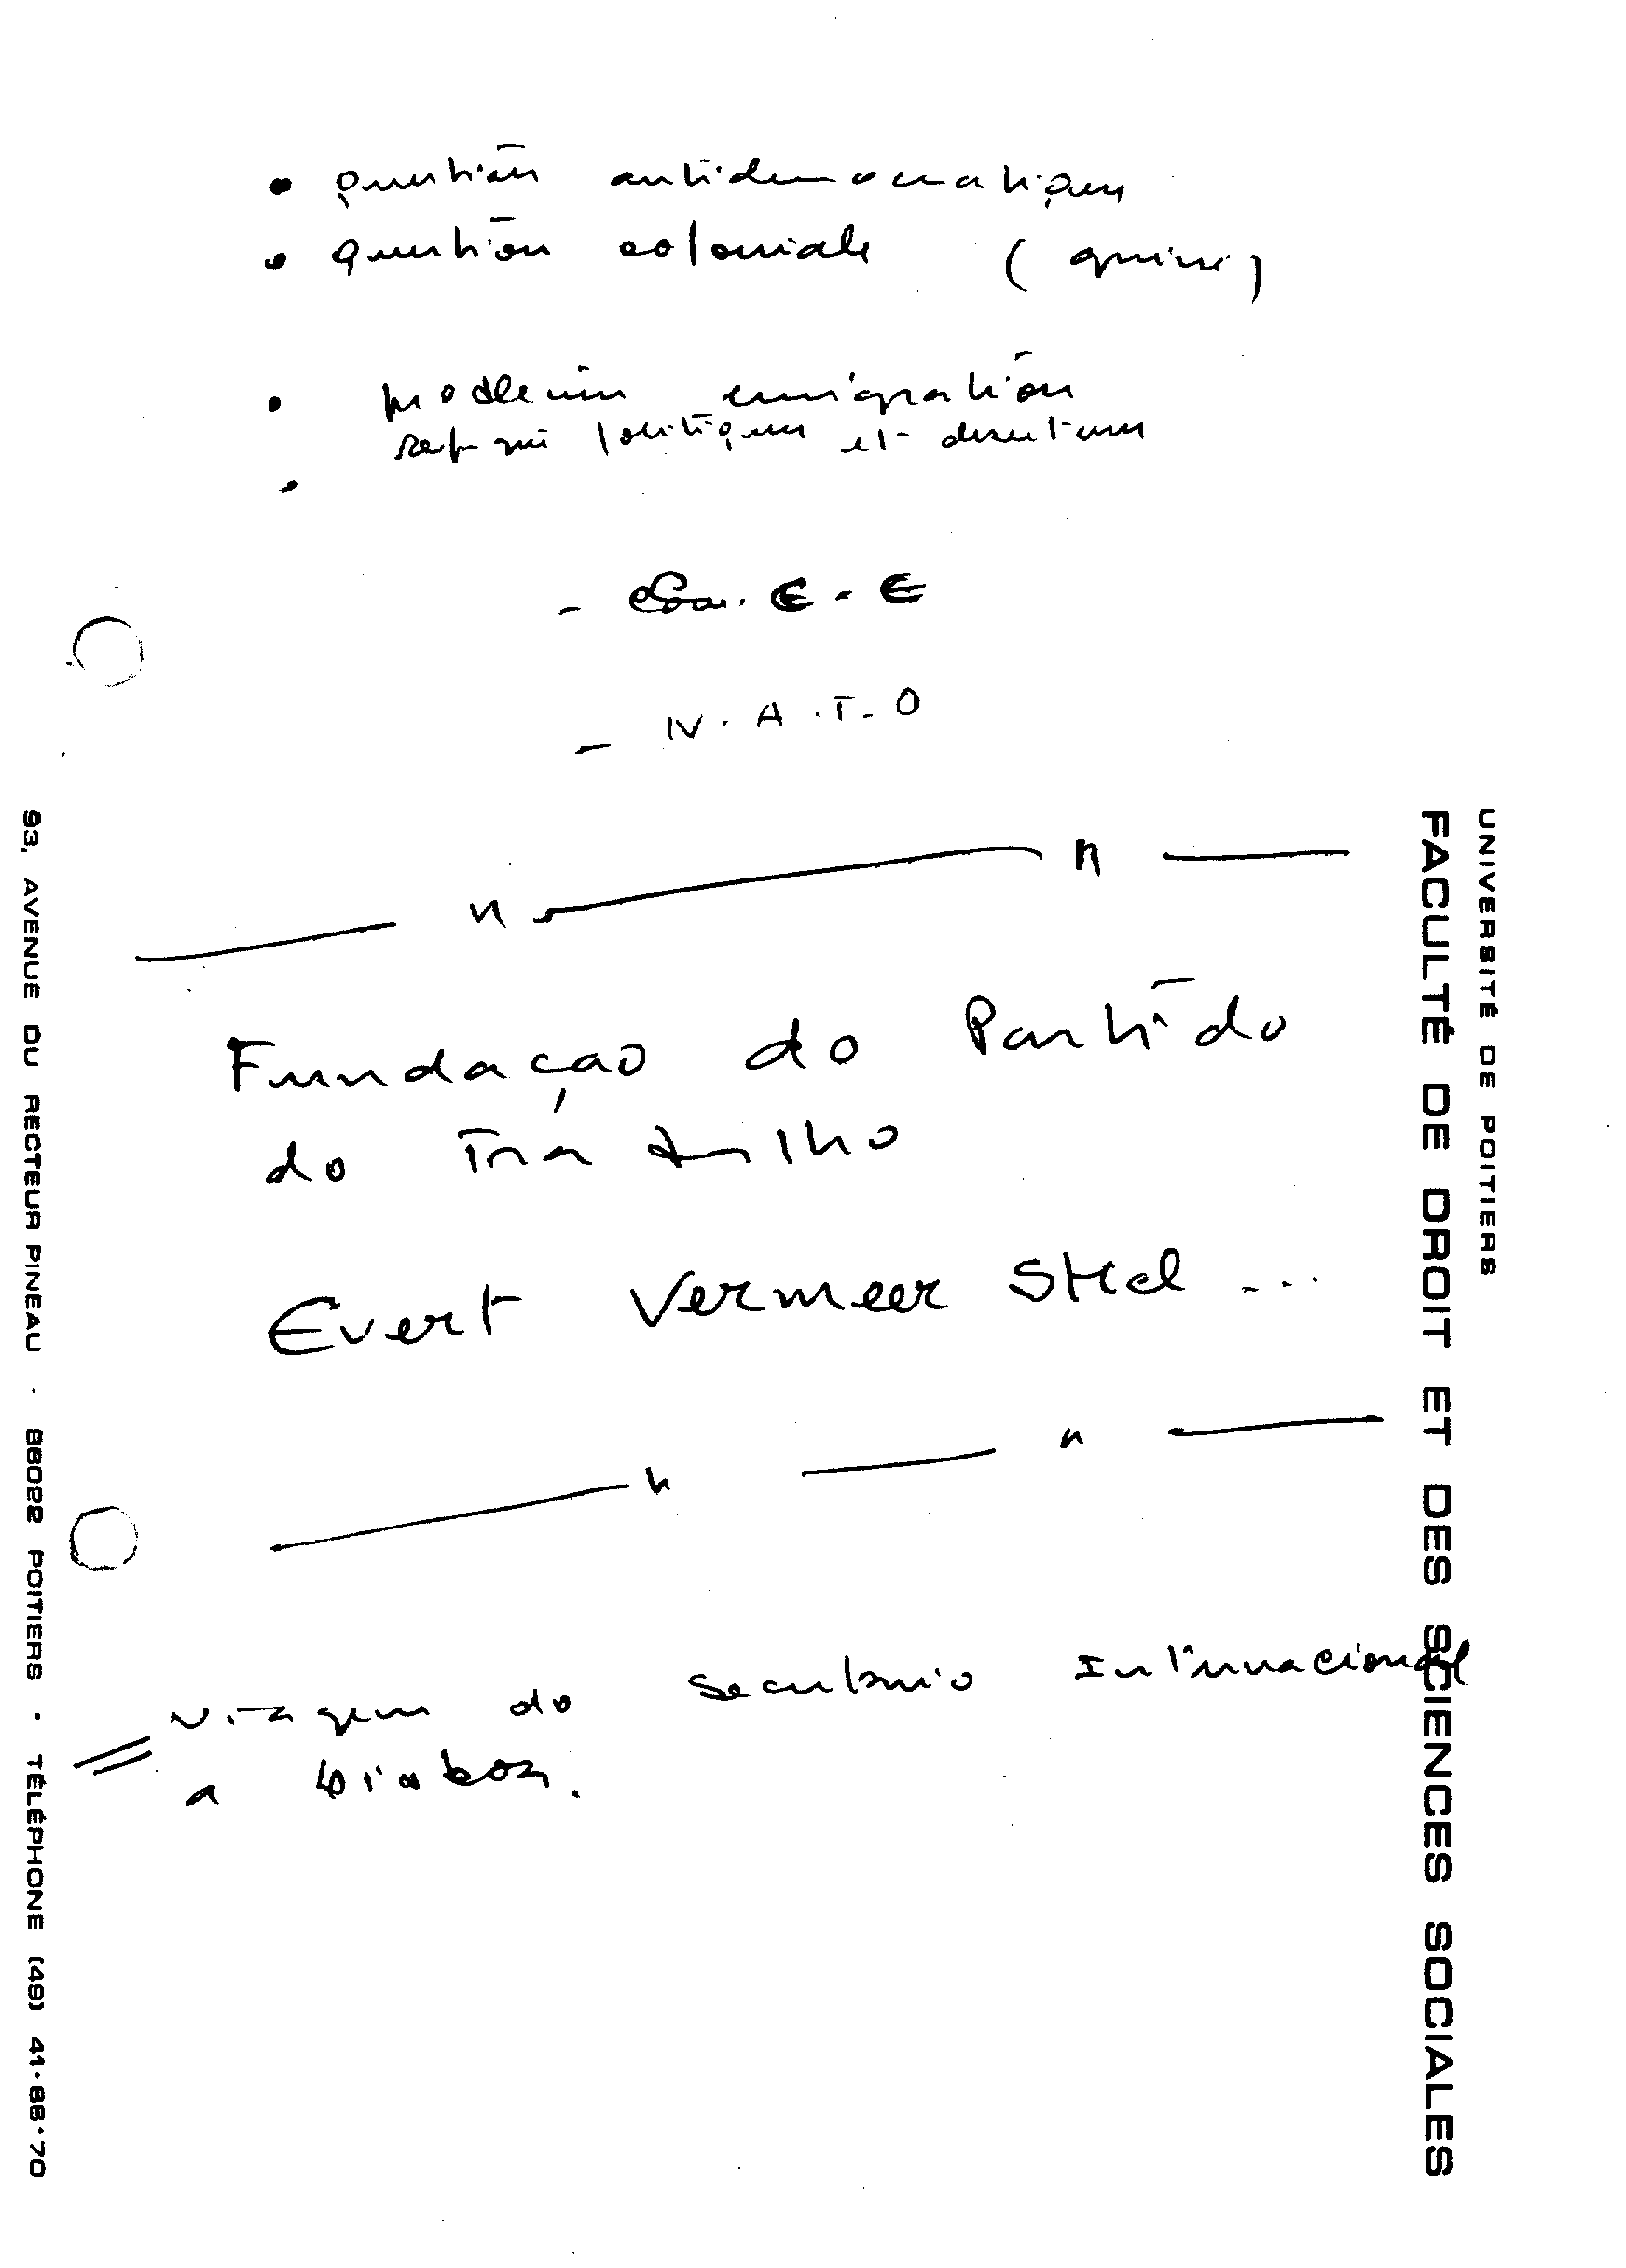 • question antidemocratique
• question coloniale (guiné)
• problemin emigration
refugié politiques et deserteurs
•
- C.E.E
- N.A.T.O
Fundaçao do Partido
do Trabalho
Evert Vermeer Sticl ...
Viagem do Secretario Internacional
a Lisboa.
UNIVERSITÉ DE POITIERS
FACULTÉ DE DROIT ET DES SCIENCES SOCIALES
93, AVENUE DU RECTEUR PINEAU · 86022 POITIERS · TÉLÉPHONE (49) 41·88·70